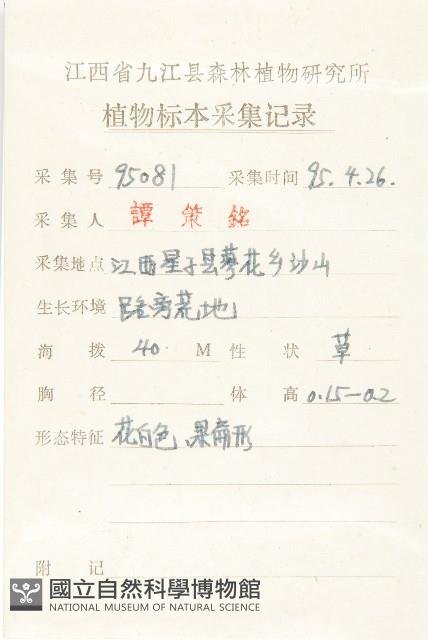 江西省九江县森林植物研究所
植物标本采集记录
采集号 95081 采集时间 95.4.26.
采集人 譚策銘
采集地点 江西星子县蓼花乡沙山
生长环境 路旁荒地
海拨 40 M 性状 草
胸径 体高 0.15—0.2
形态特征 花白色,果扁形
附记
國立自然科學博物館
NATIONAL MUSEUM OF NATURAL SCIENCE